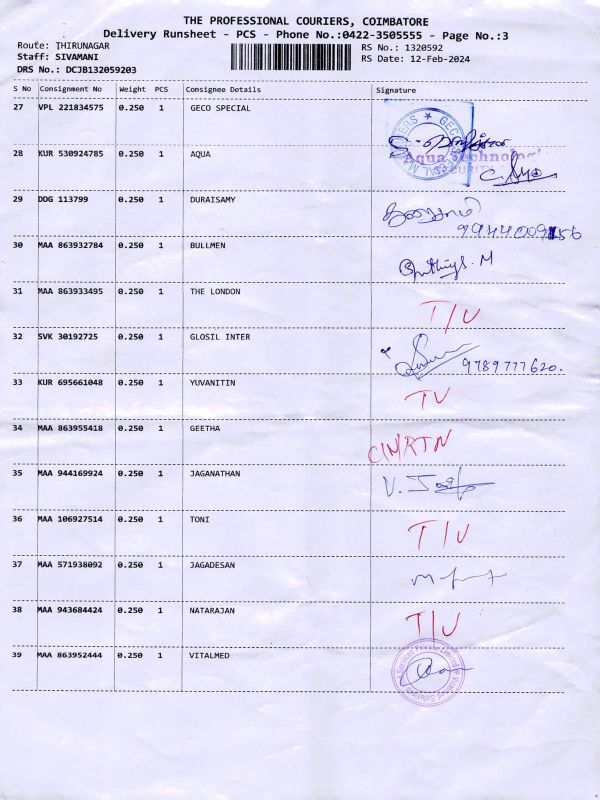 THE PROFESSIONAL COURIERS, COIMBATORE
Delivery Runsheet - PCS - Phone No.:0422-3505555 - Page No.:3
Route: THIRUNAGAR
RS No.: 1320592
Staff: SIVAMANI
RS Date: 12-Feb-2024
DRS No.: DCJB132059203
S No Consignment No Weight PCS Consignee Details Signature
27 VPL 221834575 0.250 1 GECO SPECIAL
28 KUR 530924785 0.250 1 AQUA
Aqua
29 DDG 113799 0.250 1 DURAISAMY
30 MAA 863932784 0.250 1 BULLMEN
31 MAA 863933495 0.250 1 THE LONDON
T/U
32 SVK 30192725 0.250 1 GLOSIL INTER
9789777620.
33 KUR 695661048 0.250 1 YUVANITIN
TU
34 MAA 863955418 0.250 1 GEETHA
CNRTN
35 MAA 944169924 0.250 1 JAGANATHAN
36 MAA 106927514 0.250 1 TONI
T/U
37 MAA 571938092 0.250 1 JAGADESAN
38 MAA 943684424 0.250 1 NATARAJAN
T/U
39 MAA 863952444 0.250 1 VITALMED